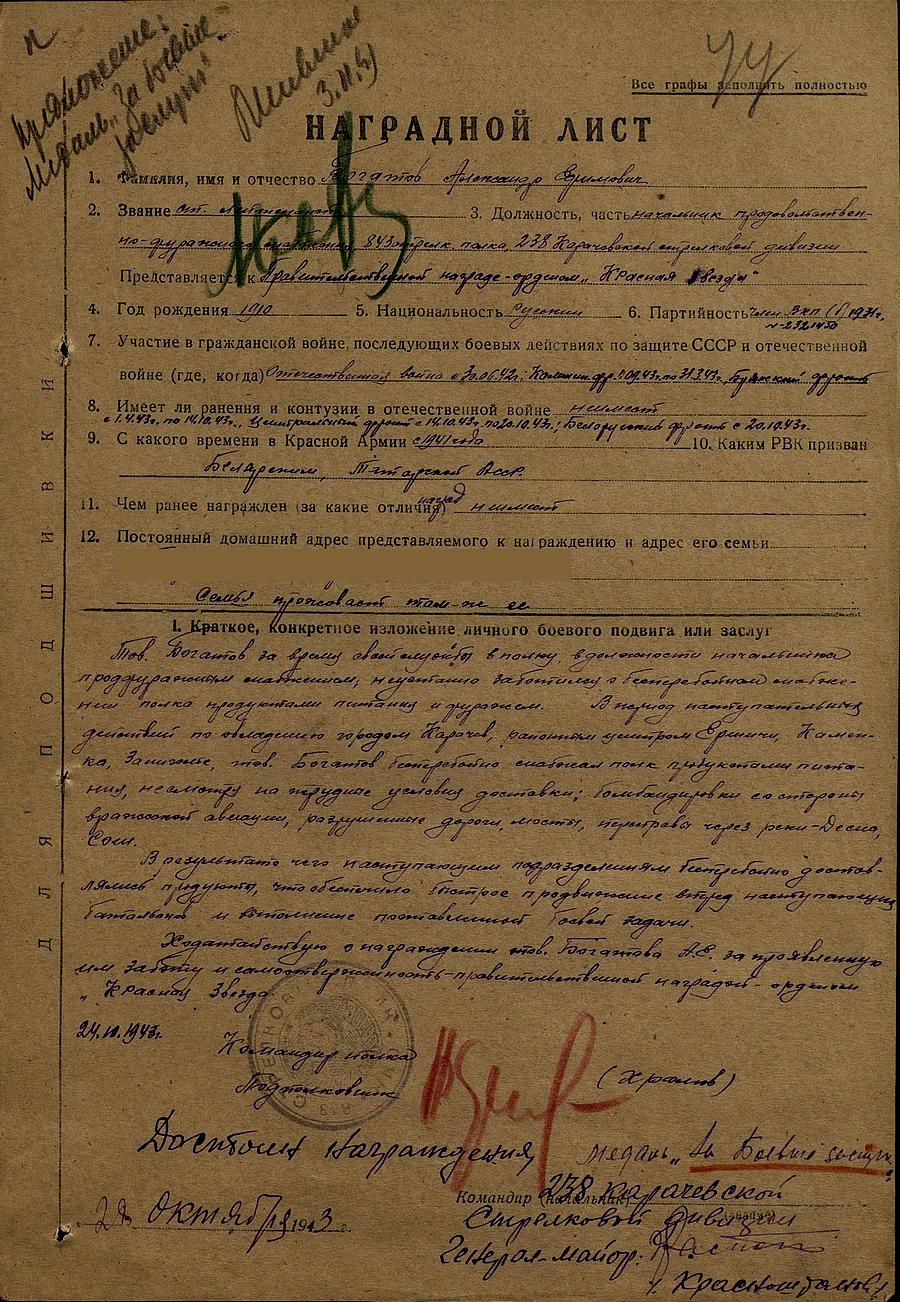 Предложение:
Медаль "За боевые
заслуги"
Все графы заполнять полностью
НАГРАДНОЙ ЛИСТ
1. Фамилия, имя и отчество Богатов Александр
2. Звание ст. лейтенант 3. Должность, часть начальник продовольствен-
но-фуражного снабжения, 843 стрелк. полка, 238 Карачевской стрелковой дивизии
Представляется к Правительственной награде - орденом "Красная звезда"
4. Год рождения 1910 5. Национальность Русский 6. Партийность член ВКП(б)
7. Участие в гражданской войне, последующих боевых действиях по защите СССР и отечественной
войне (где, когда) Отечественная война с Брянский фронт
8. Имеет ли ранения и контузии в отечественной войне не имеет
с 1.4.43г. по 14.10.43г., Центральный фронт с 14.10.43г. по 20.10.43г.; Белорусский фронт с 20.10.43г.
9. С какого времени в Красной Армии с 1941 года 10. Каким РВК призван
Татарской АССР.
11. Чем ранее награжден (за какие отличия) наград не имеет
12. Постоянный домашний адрес представляемого к награждению и адрес его семьи
Семья проживает там-же
I. Краткое, конкретное изложение личного боевого подвига или заслуг
Тов. Богатов за время своей службы в полку, в должности начальника
продфуражным снабжением, неустанно заботился о бесперебойном снабже-
нии полка продуктами питания и фуражем. В период наступательных
действий по овладению городом Карачев, районным центром Ершичи, Камен-
ка, тов. Богатов бесперебойно снабжал полк продуктами пита-
ния, несмотря на трудные условия доставки; бомбардировки со стороны
вражеской авиации, разрушенные дороги, мосты, переправы через реки - Десна,
Сож.
В результате чего наступающим подразделениям бесперебойно достав-
лялись продукты, что обеспечило быстрое продвижение вперед наступающих
батальонов и выполнение поставленной боевой задачи.
Ходатайствую о награждении тов. Богатова А.Е. за проявленную
им заботу и самоотверженность - правительственной наградой - орденом
"Красная Звезда"
24.10.1943г.
Командир полка
Подполковник
Достоин награждения
медаль "За Боевые заслуги"
Командир (начальник) 238 Карачевской
28 Октября 1943 г.
Стрелковой дивизии
Генерал-майор:
ДЛЯ ПОДШИВКИ